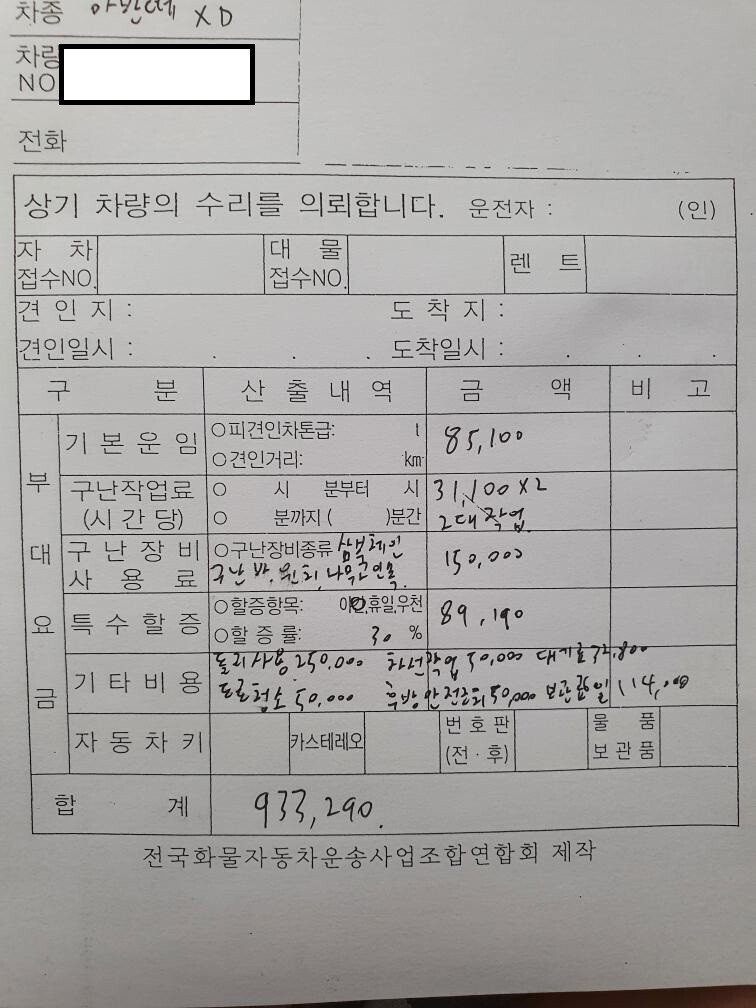 차종 아반떼 XD
차량
NO
전화
상기 차량의 수리를 의뢰합니다. 운전자 : (인)
자 차 접수NO. 대 물 접수NO. 렌 트
견 인 지 : 도 착 지 :
견인일시 : . . . 도착일시 : . . .
구 분 산 출 내 역 금 액 비 고
부 대 요 금
기 본 운 임 ○피견인차톤급: t 85,100
○견인거리: km
구난작업료 ○ 시 분부터 시 31,100 X 2
(시 간 당) ○ 분까지 ( )분간 2대 작업
구 난 장 비 ○구난장비종류 삼색체인 150,000
사 용 료 구난 바, 윈치, 나무고인목
특 수 할 증 ○할증항목: 야간,휴일,우천 89,190
○할 증 률: 30 %
기 타 비 용 돌리사용 250,000 차선작업 50,000 대기료 32,800
도로청소 50,000 후방안전조치 50,000 보관료 일 114,000
자 동 차 키 카스테레오 번 호 판 (전 · 후) 물 품 보 관 품
합 계 933,290.
전국화물자동차운송사업조합연합회 제작